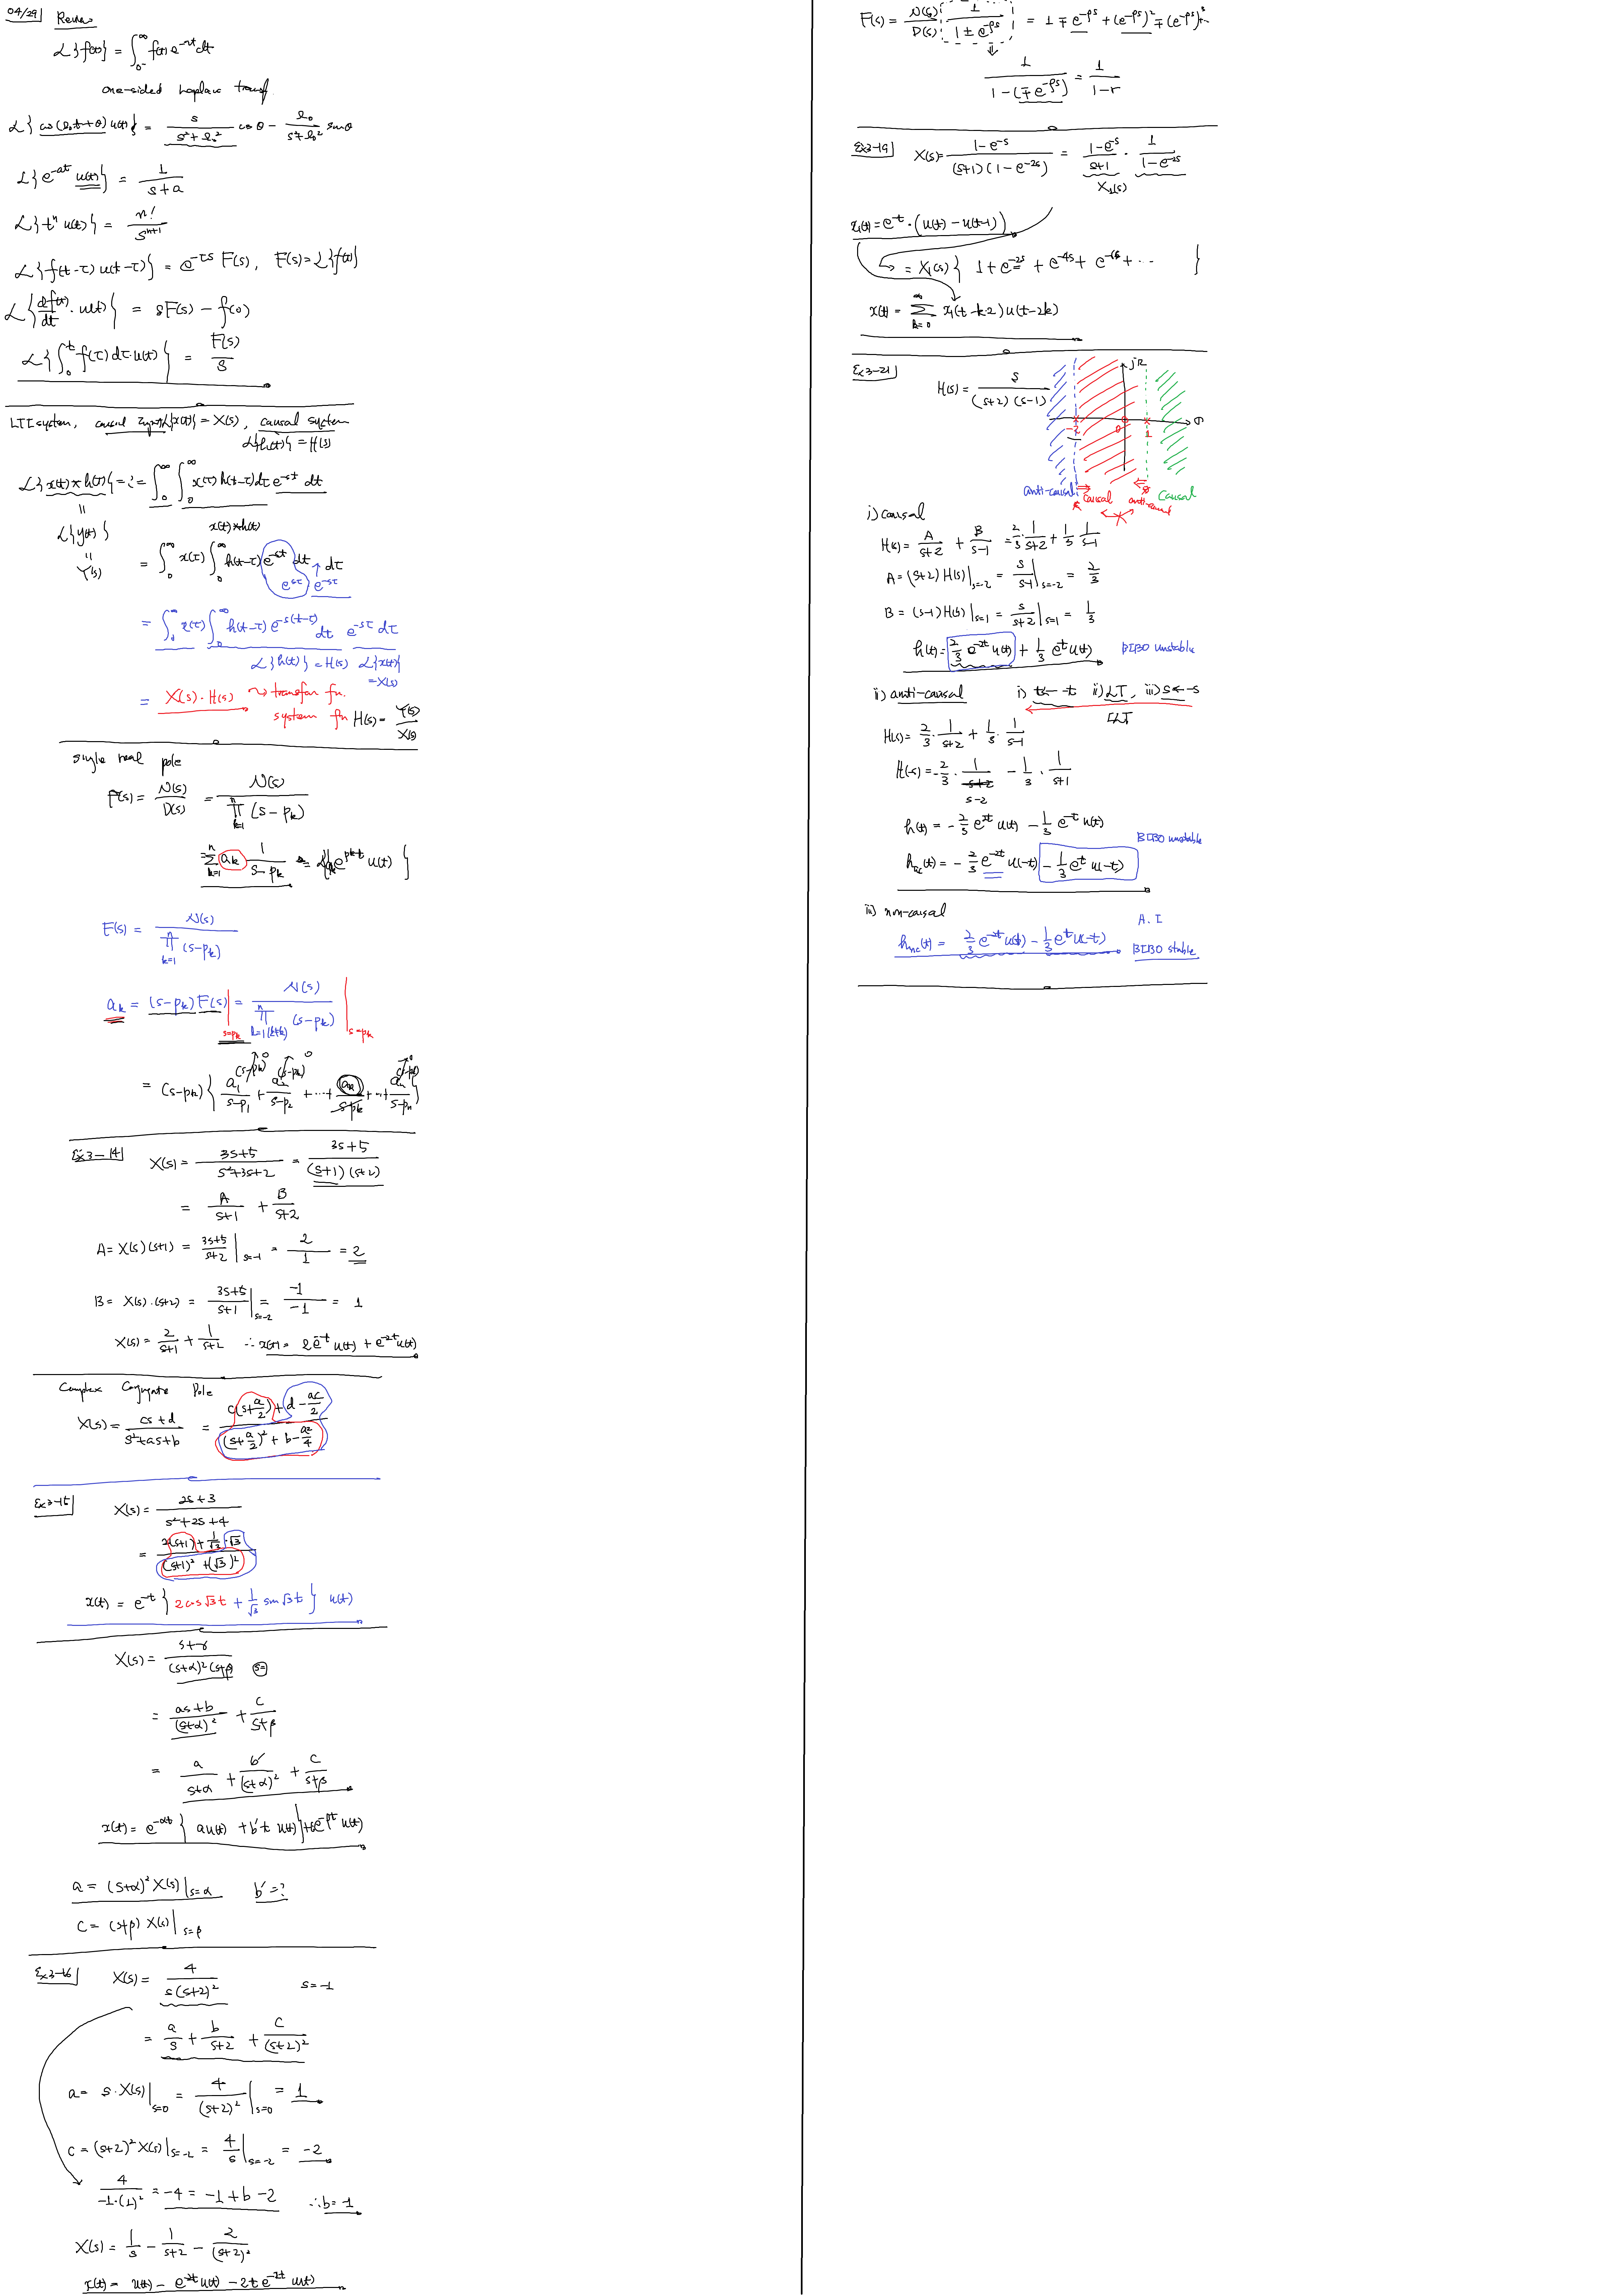 04/29 Review
ℒ{f(t)} = ∫_{0-}^{∞} f(t) e^{-st} dt
one-sided Laplace transf.
ℒ{cos(Ω₀t+θ) u(t)} = s/(s²+Ω₀²) cos θ - Ω₀/(s²+Ω₀²) sin θ
ℒ{e^{-at} u(t)} = 1/(s+a)
ℒ{t^n u(t)} = n!/s^{n+1}
ℒ{f(t-τ) u(t-τ)} = e^{-τs} F(s), F(s) = ℒ{f(t)}
ℒ{df(t)/dt · u(t)} = sF(s) - f(0)
ℒ{∫_0^t f(τ) dτ · u(t)} = F(s)/s
LTI system, causal input ℒ{x(t)} = X(s), causal system
ℒ{h(t)} = H(s)
ℒ{x(t) * h(t)} = ∫_0^∞ ∫_0^∞ x(τ) h(t-τ) dτ e^{-st} dt
x(t)*h(t)
=
ℒ{y(t)}
=
Y(s)
= ∫_0^∞ x(τ) ∫_0^∞ h(t-τ) e^{-st} dt dτ
e^{sτ} e^{-sτ}
= ∫_0^∞ x(τ) ∫_0^∞ h(t-τ) e^{-s(t-τ)} dt e^{-sτ} dτ
ℒ{h(t)} = H(s) ℒ{x(t)}
= X(s)
= X(s) · H(s) ⇝ transfer fn.
system fn H(s) = Y(s)/X(s)
single real pole
F(s) = N(s)/D(s) = N(s)/∏_{k=1}^{n} (s-p_k)
= Σ_{k=1}^{n} a_k 1/(s-p_k) = ℒ{a_k e^{p_k t} u(t)}
F(s) = N(s)/∏_{k=1}^{n} (s-p_k)
a_k = (s-p_k) F(s)|_{s=p_k} = N(s)/∏_{l=1(l≠k)}^{n} (s-p_k) |_{s=p_k}
(s-p_k)→0 (s-p_k)→0 (s-p_k)→0
= (s-p_k) {a_1/(s-p_1) + a_2/(s-p_2) + ··· + a_k/(s-p_k) + ·· + a_n/(s-p_n)}
Ex3-14
X(s) = (3s+5)/(s²+3s+2) = (3s+5)/((s+1)(s+2))
= A/(s+1) + B/(s+2)
A = X(s)(s+1) = (3s+5)/(s+2) |_{s=-1} = 2/1 = 2
B = X(s)·(s+2) = (3s+5)/(s+1) |_{s=-2} = -1/-1 = 1
X(s) = 2/(s+1) + 1/(s+2) ∴ x(t) = 2e^{-t} u(t) + e^{-2t} u(t)
Complex Conjugate Pole
X(s) = (cs+d)/(s²+as+b) = (c(s+a/2) + d - ac/2)/((s+a/2)² + b - a²/4)
Ex3-15
X(s) = (2s+3)/(s²+2s+4)
= (2(s+1) + 1/√3 · √3)/((s+1)² + (√3)²)
x(t) = e^{-t} {2cos√3t + 1/√3 sin√3t} u(t)
X(s) = (s+γ)/((s+α)²(s+β)) s=
= (as+b)/(s+α)² + c/(s+β)
= a/(s+α) + b'/(s+α)² + c/(s+β)
x(t) = e^{-αt} {a u(t) + b't u(t)} + c e^{-βt} u(t)
a = (s+α)² X(s)|_{s=α} b' = ?
c = (s+β) X(s)|_{s=β}
Ex3-16
X(s) = 4/(s(s+2)²) s=-1
= a/s + b/(s+2) + c/(s+2)²
a = s·X(s)|_{s=0} = 4/(s+2)² |_{s=0} = 1
c = (s+2)² X(s)|_{s=-2} = 4/s |_{s=-2} = -2
4/(-1·(1)²) = -4 = -1 + b - 2 ∴ b = -1
X(s) = 1/s - 1/(s+2) - 2/(s+2)²
x(t) = u(t) - e^{-2t} u(t) - 2t e^{-2t} u(t)
F(s) = N(s)/D(s) 1/(1 ± e^{-ρs}) = 1 ∓ e^{-ρs} + (e^{-ρs})² ∓ (e^{-ρs})³ + ··
⇓
1/(1-(∓e^{-ρs})) = 1/(1-r)
Ex3-19
X(s) = (1-e^{-s})/((s+1)(1-e^{-2s})) = (1-e^{-s})/(s+1) · 1/(1-e^{-2s})
X₁(s)
x₁(t) = e^{-t} · (u(t) - u(t-1))
= X₁(s) {1 + e^{-2s} + e^{-4s} + e^{-6s} + ··· }
x(t) = Σ_{k=0}^{∞} x₁(t-k2) u(t-2k)
Ex3-21
H(s) = s/((s+2)(s-1))
jΩ
σ
-2 0 1
anti-causal causal anti-causal Causal
i) causal
H(s) = A/(s+2) + B/(s-1) = 2/3 · 1/(s+2) + 1/3 · 1/(s-1)
A = (s+2) H(s)|_{s=-2} = s/(s-1) |_{s=-2} = 2/3
B = (s-1) H(s)|_{s=1} = s/(s+2) |_{s=1} = 1/3
h(t) = 2/3 e^{-2t} u(t) + 1/3 e^{t} u(t) BIBO unstable
ii) anti-causal i) t← -t ii) LT, iii) s← -s
ILT
H(s) = 2/3 · 1/(s+2) + 1/3 · 1/(s-1)
H(-s) = -2/3 · 1/(s-2) - 1/3 · 1/(s+1)
h(t) = -2/3 e^{2t} u(t) - 1/3 e^{-t} u(t)
BIBO unstable
h_{ac}(t) = -2/3 e^{-2t} u(-t) - 1/3 e^{t} u(-t)
iii) non-causal
A.I
h_{nc}(t) = 2/3 e^{-2t} u(t) - 1/3 e^{t} u(-t) BIBO stable